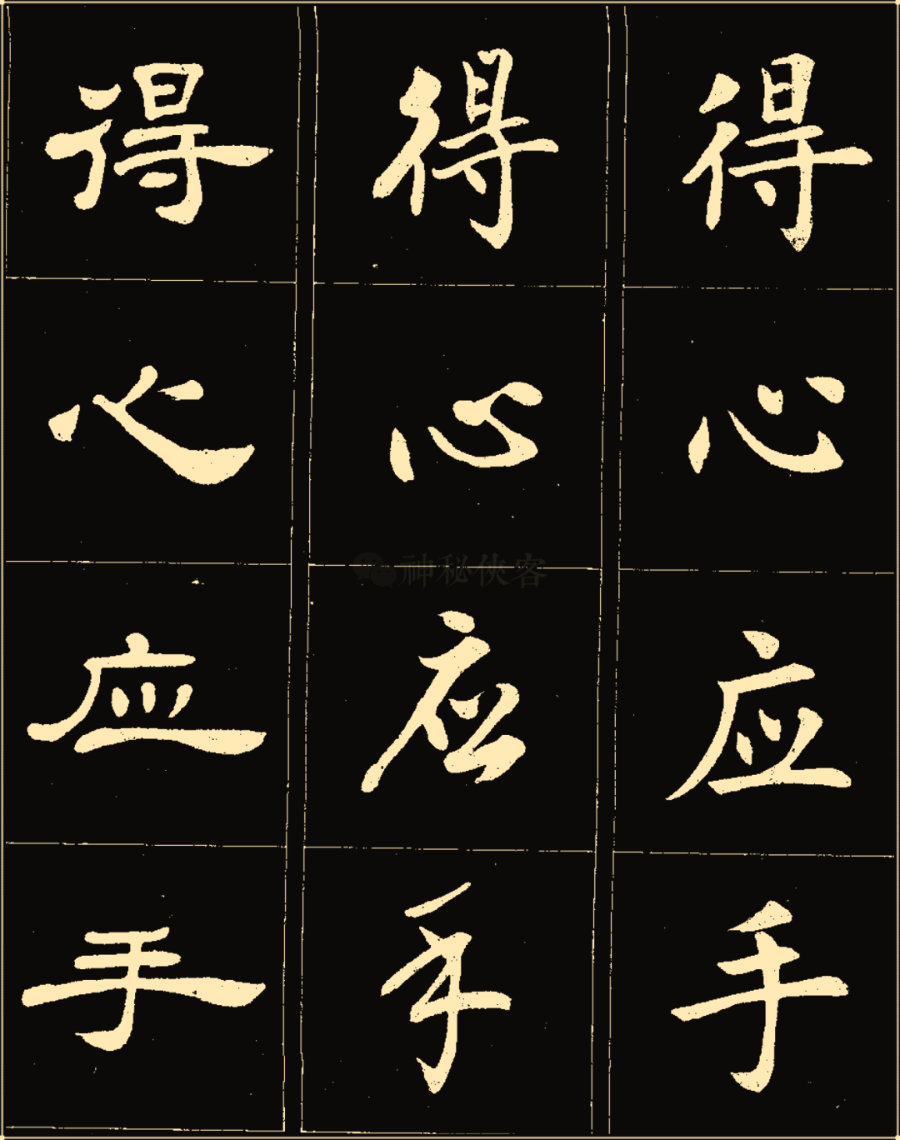 得心应手
得心应手
得心应手
神秘侠客